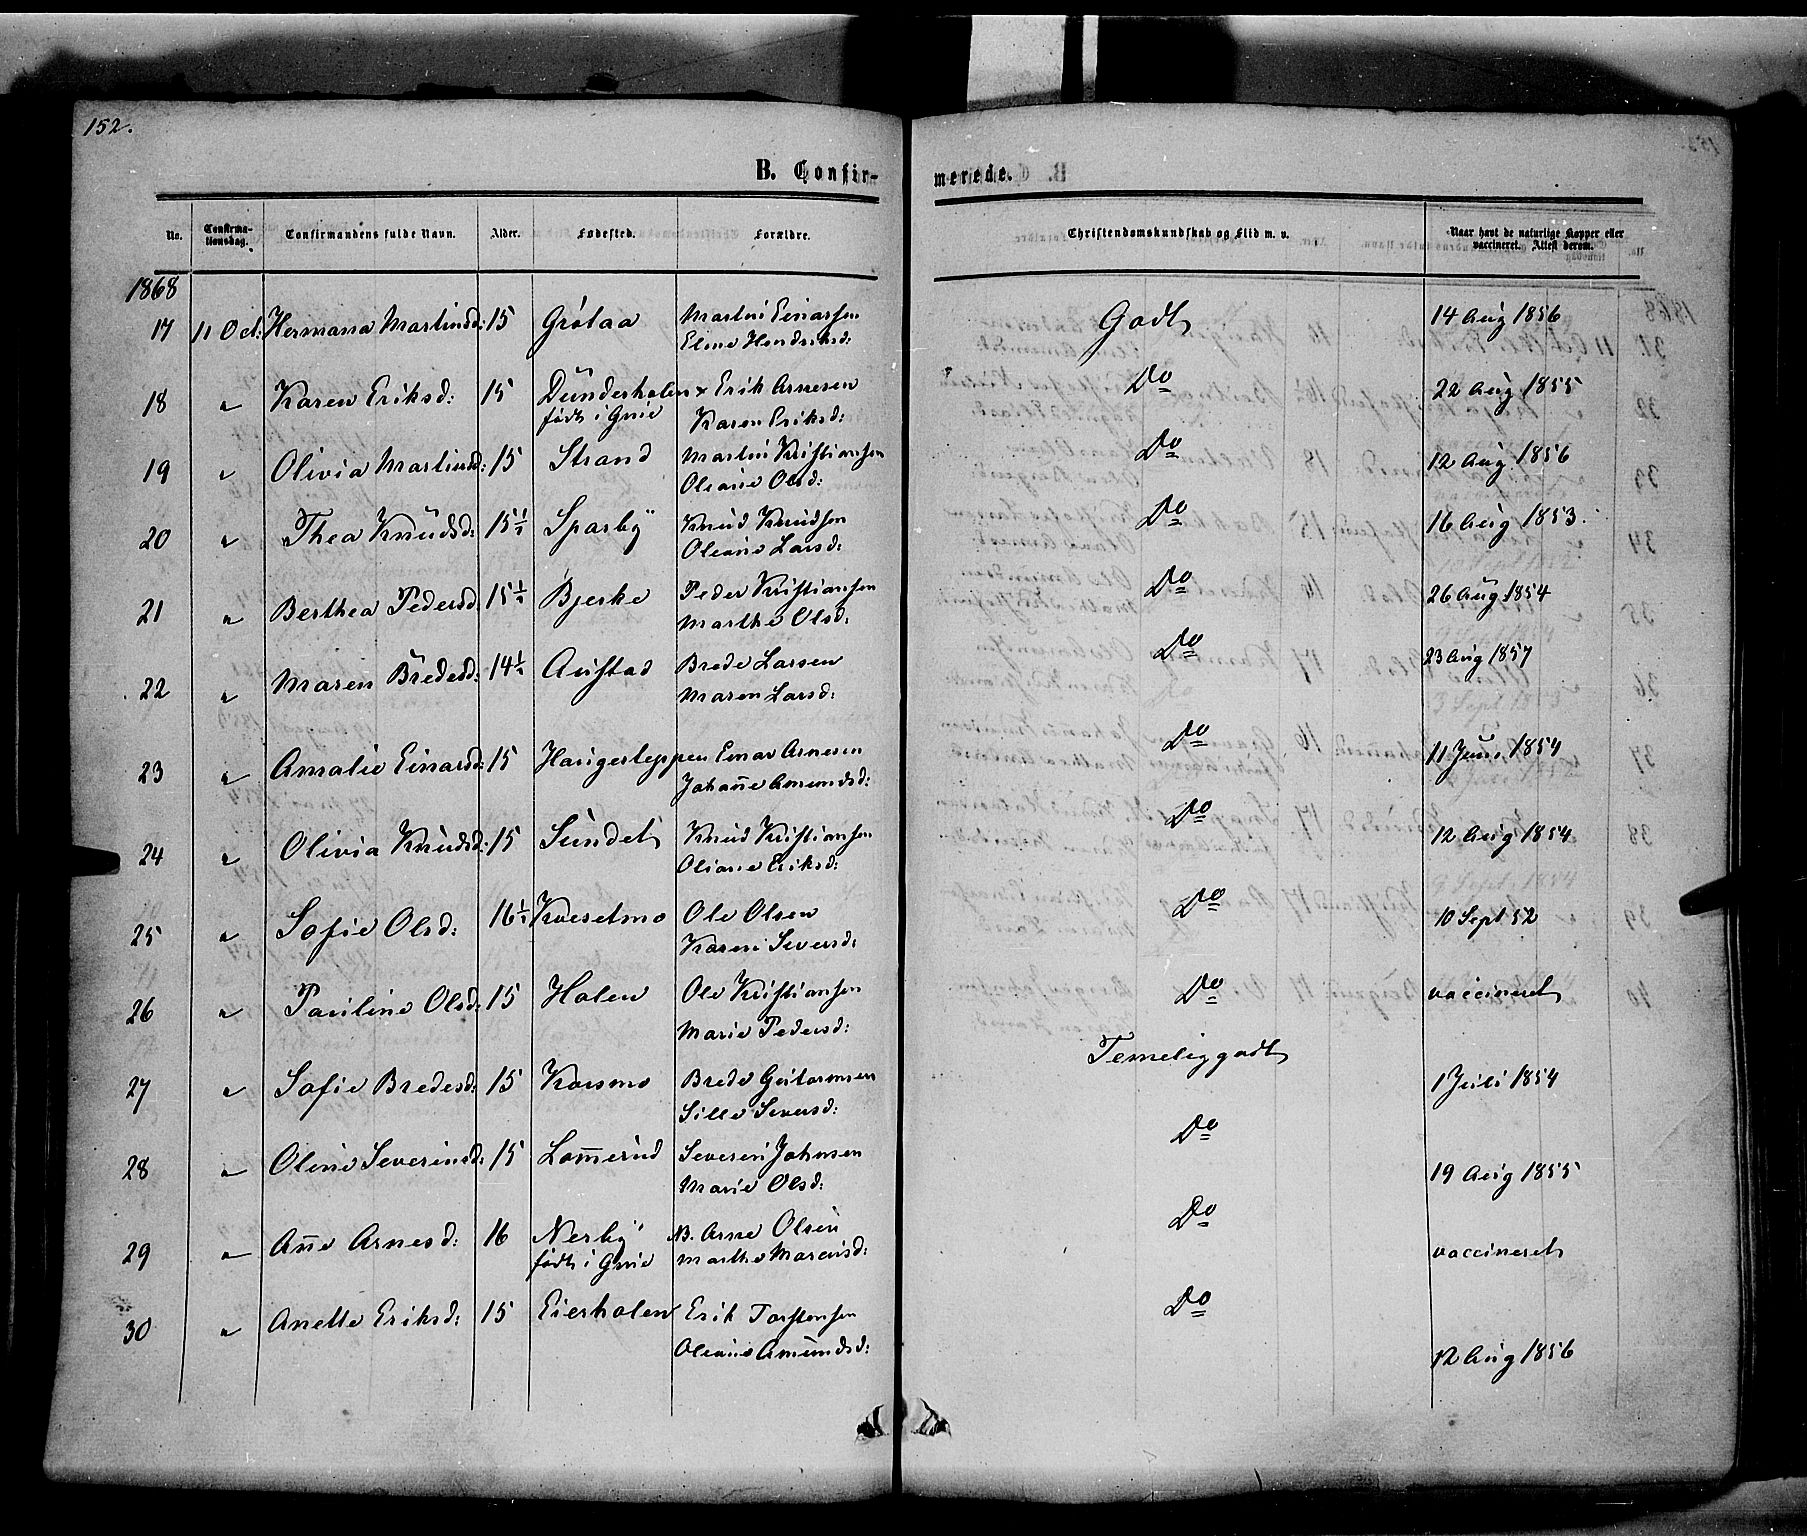 152.
B. Confirmerede.
No. | Confirmationsdag. | Confirmandens fulde Navn. | Alder. | Fødested. | Forældre. | Christendomskundskab og Flid m. v. | Naar havt de naturlige Kopper eller vaccineret. Attest derom.
1868
17 | 11 Oct: | Hermana Martinsd: | 15 | Grøtaa | Martin Einarsen | Godt | 14 Aug 1856
Eline Hendriksd:
18 | " | Karen Eriksd: | 15 | Dünderholen | + Erik Arnesen | Do | 22 Aug 1855
født i Grue | Karen Eriksd:
19 | " | Olivia Martinsd: | 15 | Strand | Martin Kristiansen | Do | 12 Aug. 1856
Oleane Olsd:
20 | " | Thea Knudsd: | 15½ | Sparby | Knud Knudsen | Do | 16 Aug 1853.
Oleane Larsd:
21 | " | Berthea Pedersd | 15½ | Bjerke | Peder Kristiansen | Do | 26 Aug 1854
Marthe Olsd:
22 | " | Maren Bredesd: | 14½ | Austad | Brede Larsen | Do | 23 Aug 1857
Maren Larsd:
23 | " | Amalie Einarsd: | 15 | Haugerteppen | Einar Arnesen | Do | 11 Juni 1854
Johanne Amundsd:
24 | " | Olivia Knudsd: | 15 | Sundet | Knud Kristiansen | Do | 12 Aug 1854
Oliane Eriksd:
25 | " | Sofie Olsd: | 16½ | Kvesetmo | Ole Olsen | Do | 10 Sept 52
Karen Seversd:
26 | " | Pauline Olsd: | 15 | Holen | Ole Kristiansen | Do | vaccineret
Marie Pedersd:
27 | " | Sofie Bredesd: | 15 | Korsmo | Brede Gutormsen | Temelig godt | 1 Juli 1854
Sille Seversd:
28 | " | Oline Severinsd: | 15 | Lommerud | Severin Johnsen | Do | 19 Aug 1855
Marie Olsd:
29 | " | Anne Arnesd: | 16 | Nerby | B. Arne Olsen | Do | vaccineret
født i Grue | Marthe Marcusd:
30 | " | Anette Eriksd: | 15 | Eierholen | Erik Torstensen | Do | 12 Aug 1856
Oleane Amundsd: